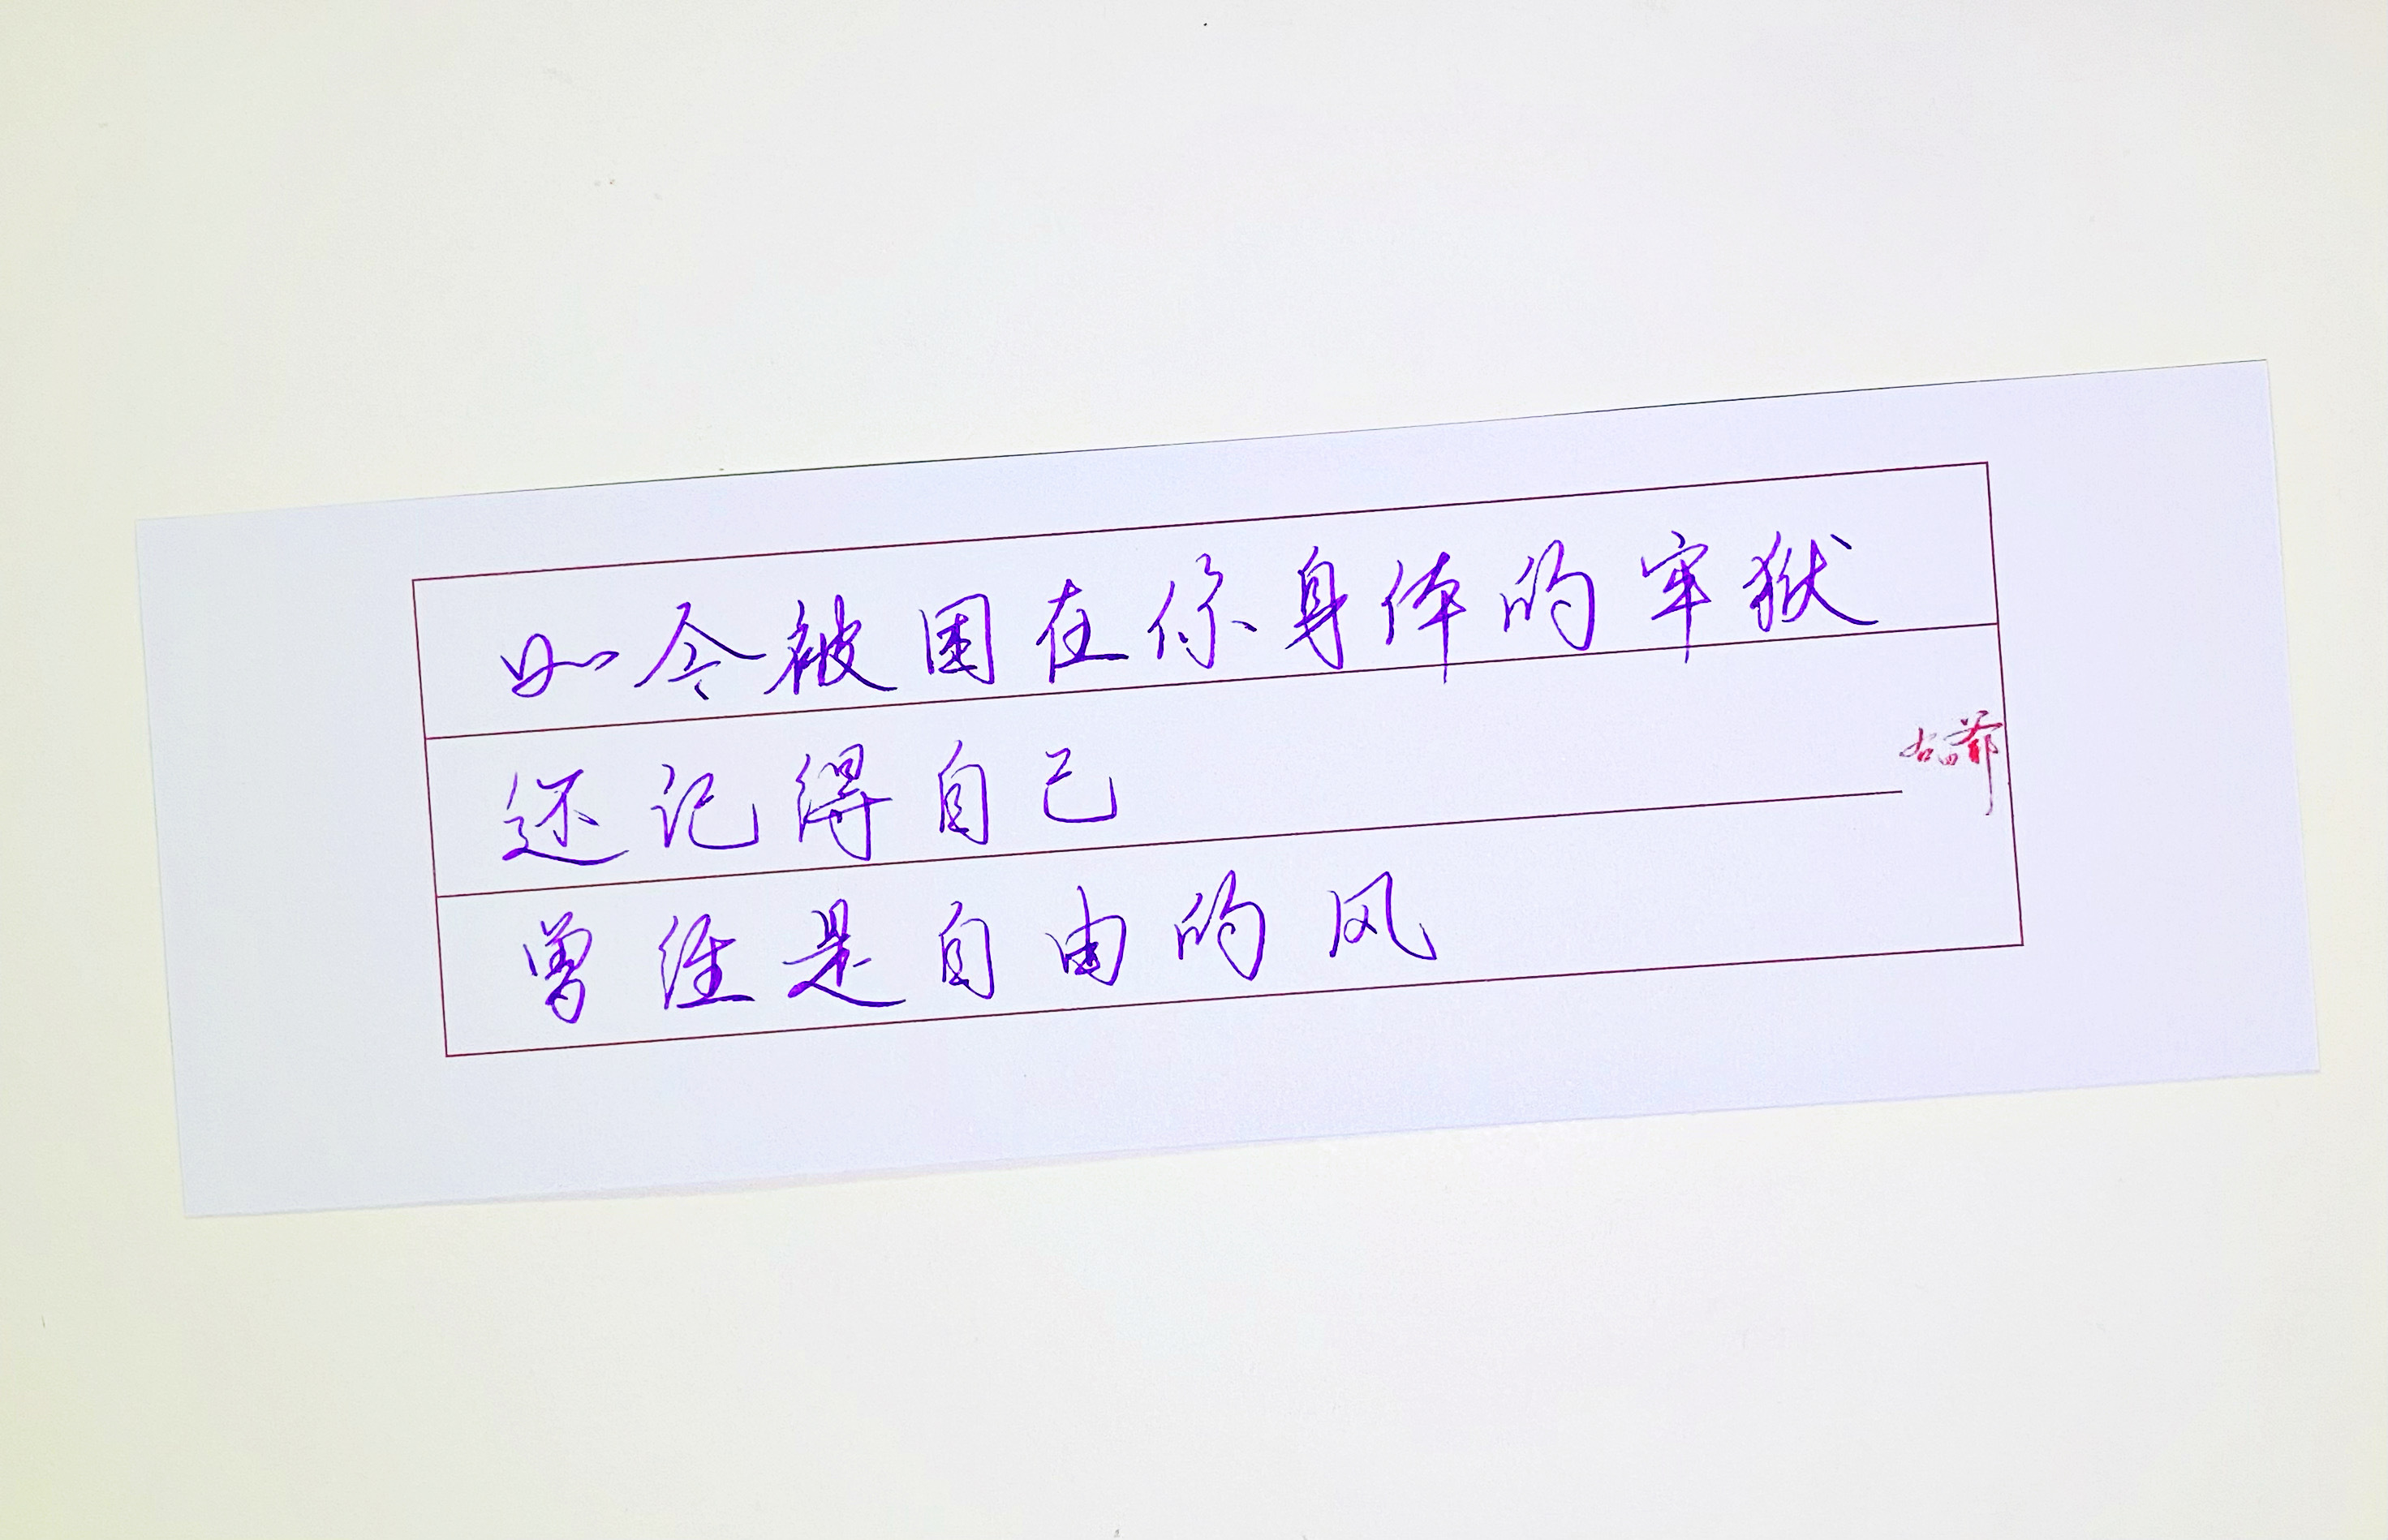 如今被困在你身体的牢狱
还记得自己
曾经是自由的风